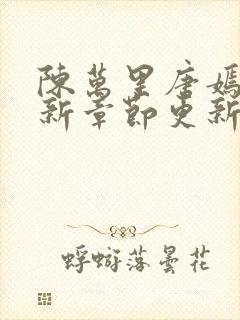 陳萬里唐嫣
新章節更新
蜉蝣落曇花